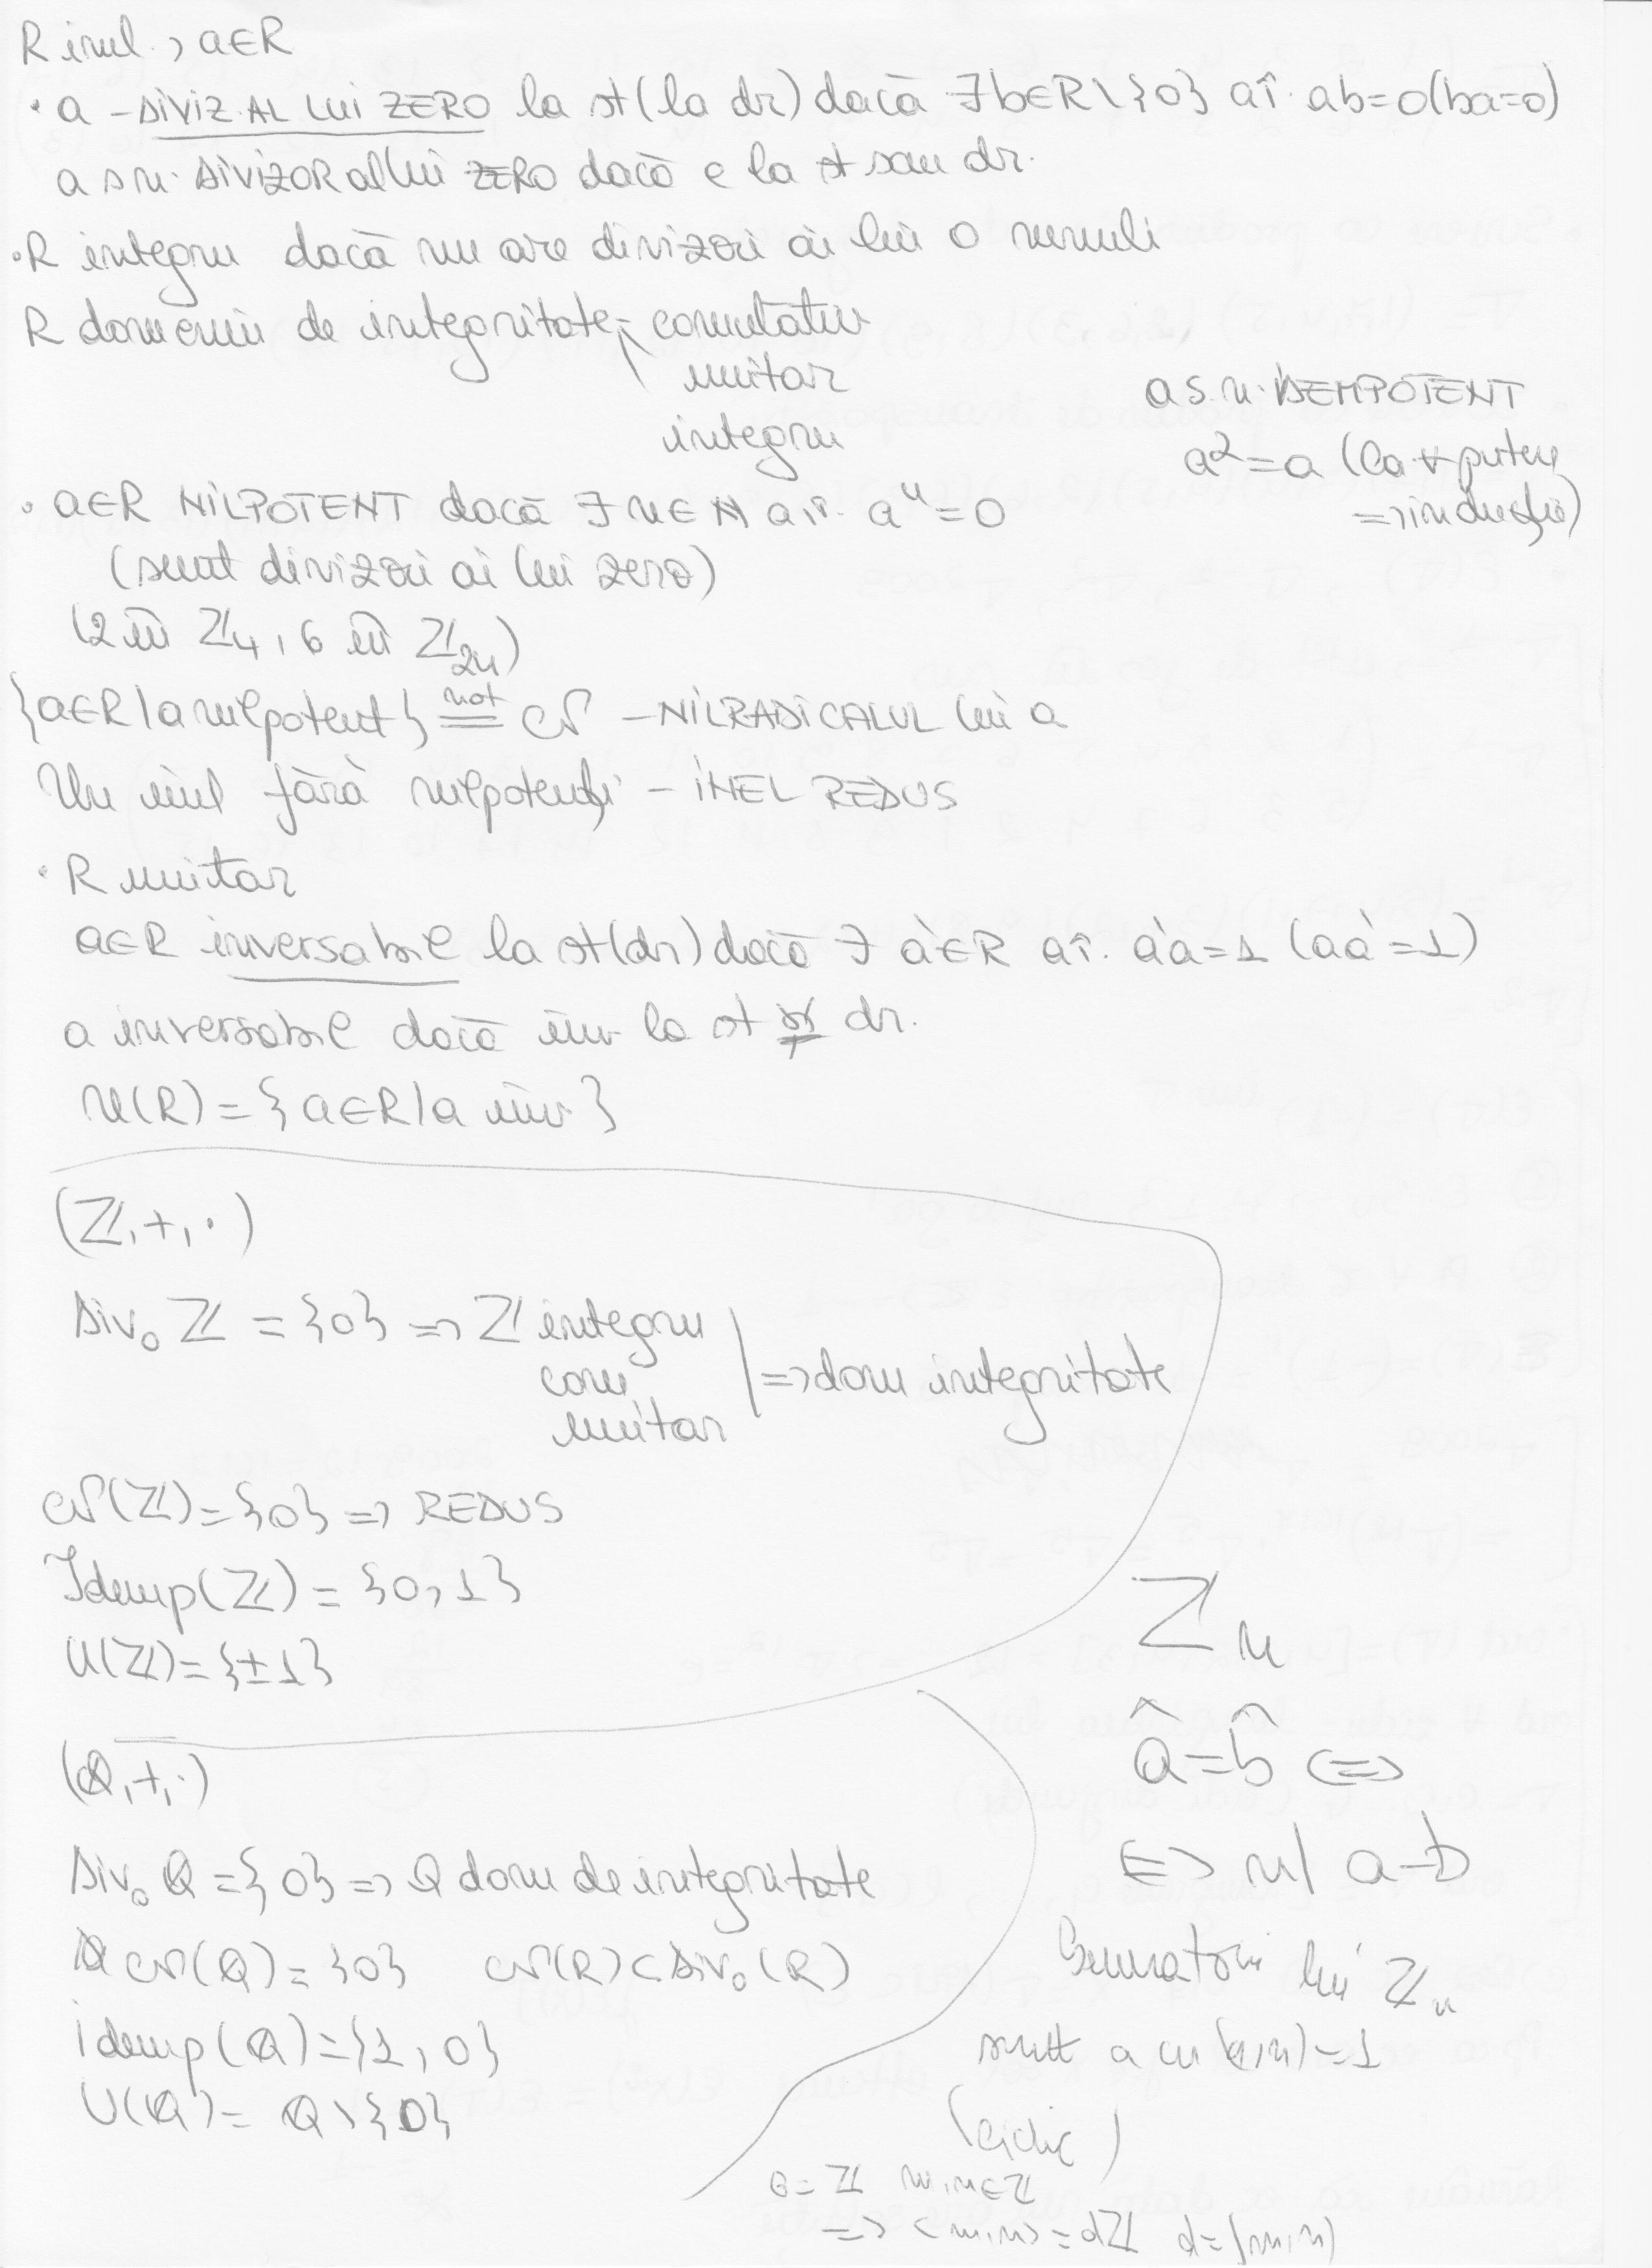 R inel, a∈R
• a - DIVIZ. AL LUI ZERO la st (la dr) dacă ∃b∈R\{0} aî. ab=0 (ba=0)
a s.n. DIVIZOR al lui ZERO dacă e la st sau dr.
• R integru dacă nu are divizori ai lui 0 nenuli
R domeniu de integritate: comutativ
unitar
integru
a s.n. IDEMPOTENT
a²=a (la ∀ putere
=> inducție)
• a∈R NILPOTENT dacă ∃ n∈N aî. aⁿ=0
(sunt divizori ai lui zero)
(2 în Z₄, 6 în Z₂₄)
{a∈R | a nilpotent} not== N - NILRADICALUL lui a
Un inel fără nilpotenți - INEL REDUS
• R unitar
a∈R inversabil la st(dr) dacă ∃ a'∈R aî. a'a=1 (aa'=1)
a inversabil dacă inv la st și dr.
U(R) = {a∈R | a inv}
(Z,+,·)
Div₀ Z = {0} => Z integru
com
unitar
=> dom integritate
N(Z)={0} => REDUS
Idemp(Z) = {0,1}
U(Z)={±1}
(Q,+,·)
Div₀ Q = {0} => Q dom de integritate
N(Q) = {0} N(R) ⊂ Div₀(R)
idemp(Q)={1,0}
U(Q) = Q\{0}
Zₙ
â=b̂ <=>
<=> n| a-b
Generatorii lui Zₙ
sunt a cu (a,n)=1
(ciclic)
G=Z m,n∈Z
=> <m,n> = dZ d=(m,n)